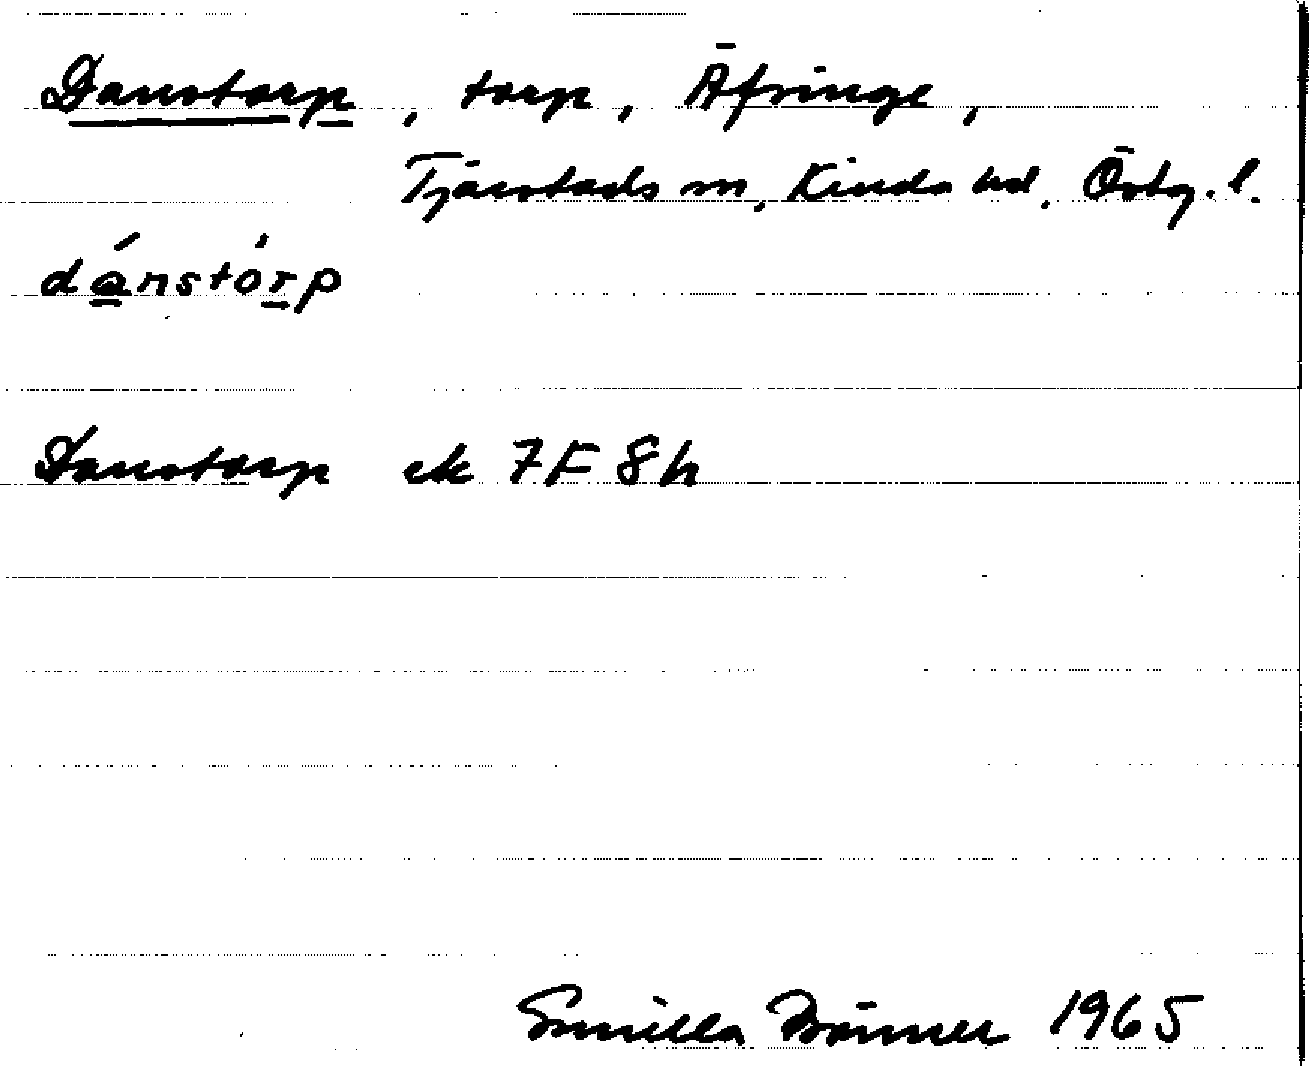 Danstorp, torp, Äfringe,
Tjärstads sn, Kinda hd, Östg. l.
dánstórp
Danstorp ek 7F 8h
Gunilla 1965